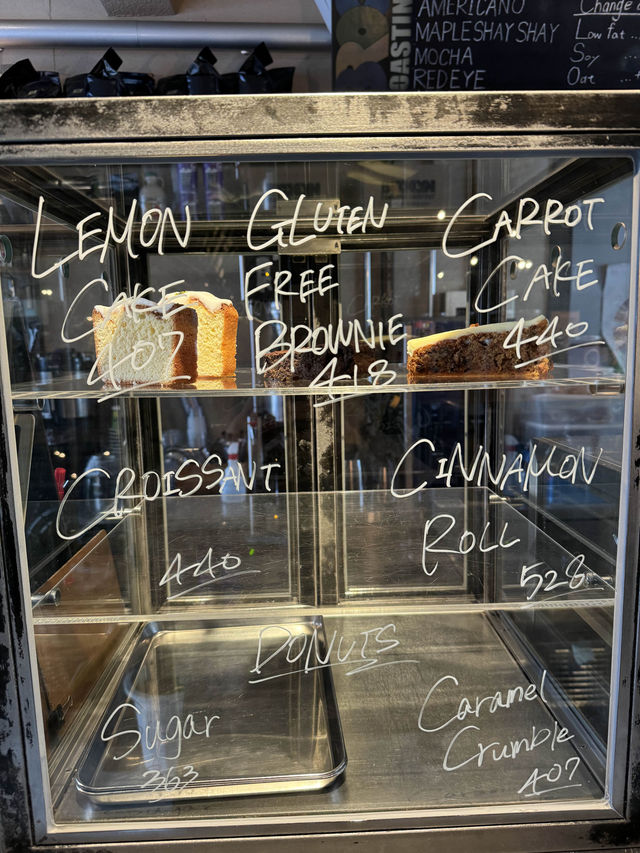 AMERICANO
MAPLESHAY SHAY
MOCHA
REDEYE
Change
Low fat ..
Soy ..
Oat ...
CASTIN
LEMON
CAKE
407
GLUTEN
FREE
BROWNIE
418
CARROT
CAKE
440
CROISSANT
440
CINNAMON
ROLL
528
DONUTS
Sugar
363
Caramel
Crumble
407